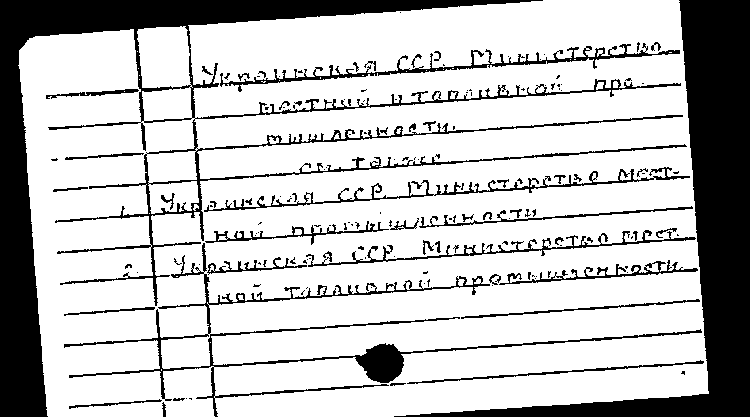 Украинская ССР. Министерство
местной и топливной про-
мышленности.
см. также
1. Украинская ССР. Министерство мест-
ной промышленности
2. Украинская ССР. Министерство мест-
ной топливной промышленности.